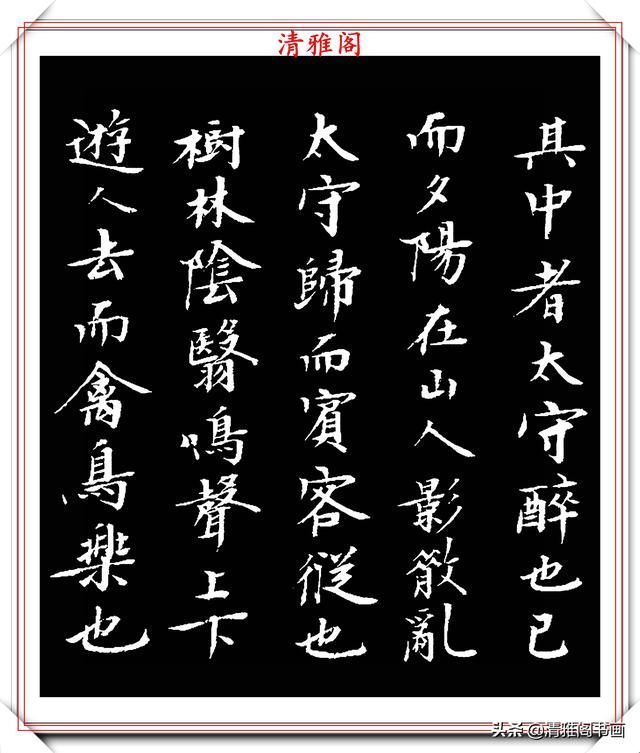 清雅阁
其中者太守醉也已
而夕陽在山人影散亂
太守歸而賓客從也
樹林陰翳鳴聲上下
遊人去而禽鳥樂也
头条 @清雅阁书画